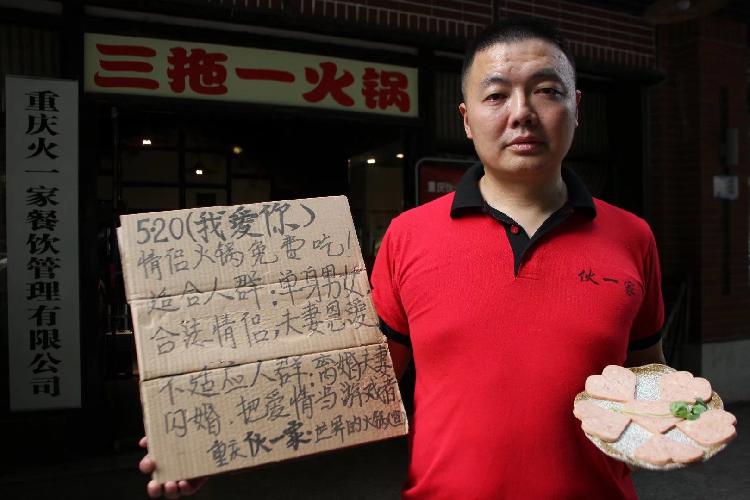 三拖一火锅
重庆火一家餐饮管理有限公司
重庆
伙一家
520(我愛你)
情侣火锅免费吃!
适合人群:单身男女
合法情侣,夫妻恩爱
不适应人群:离婚夫妻
闪婚.把爱情当游戏者
重庆伙一家:世界的火锅